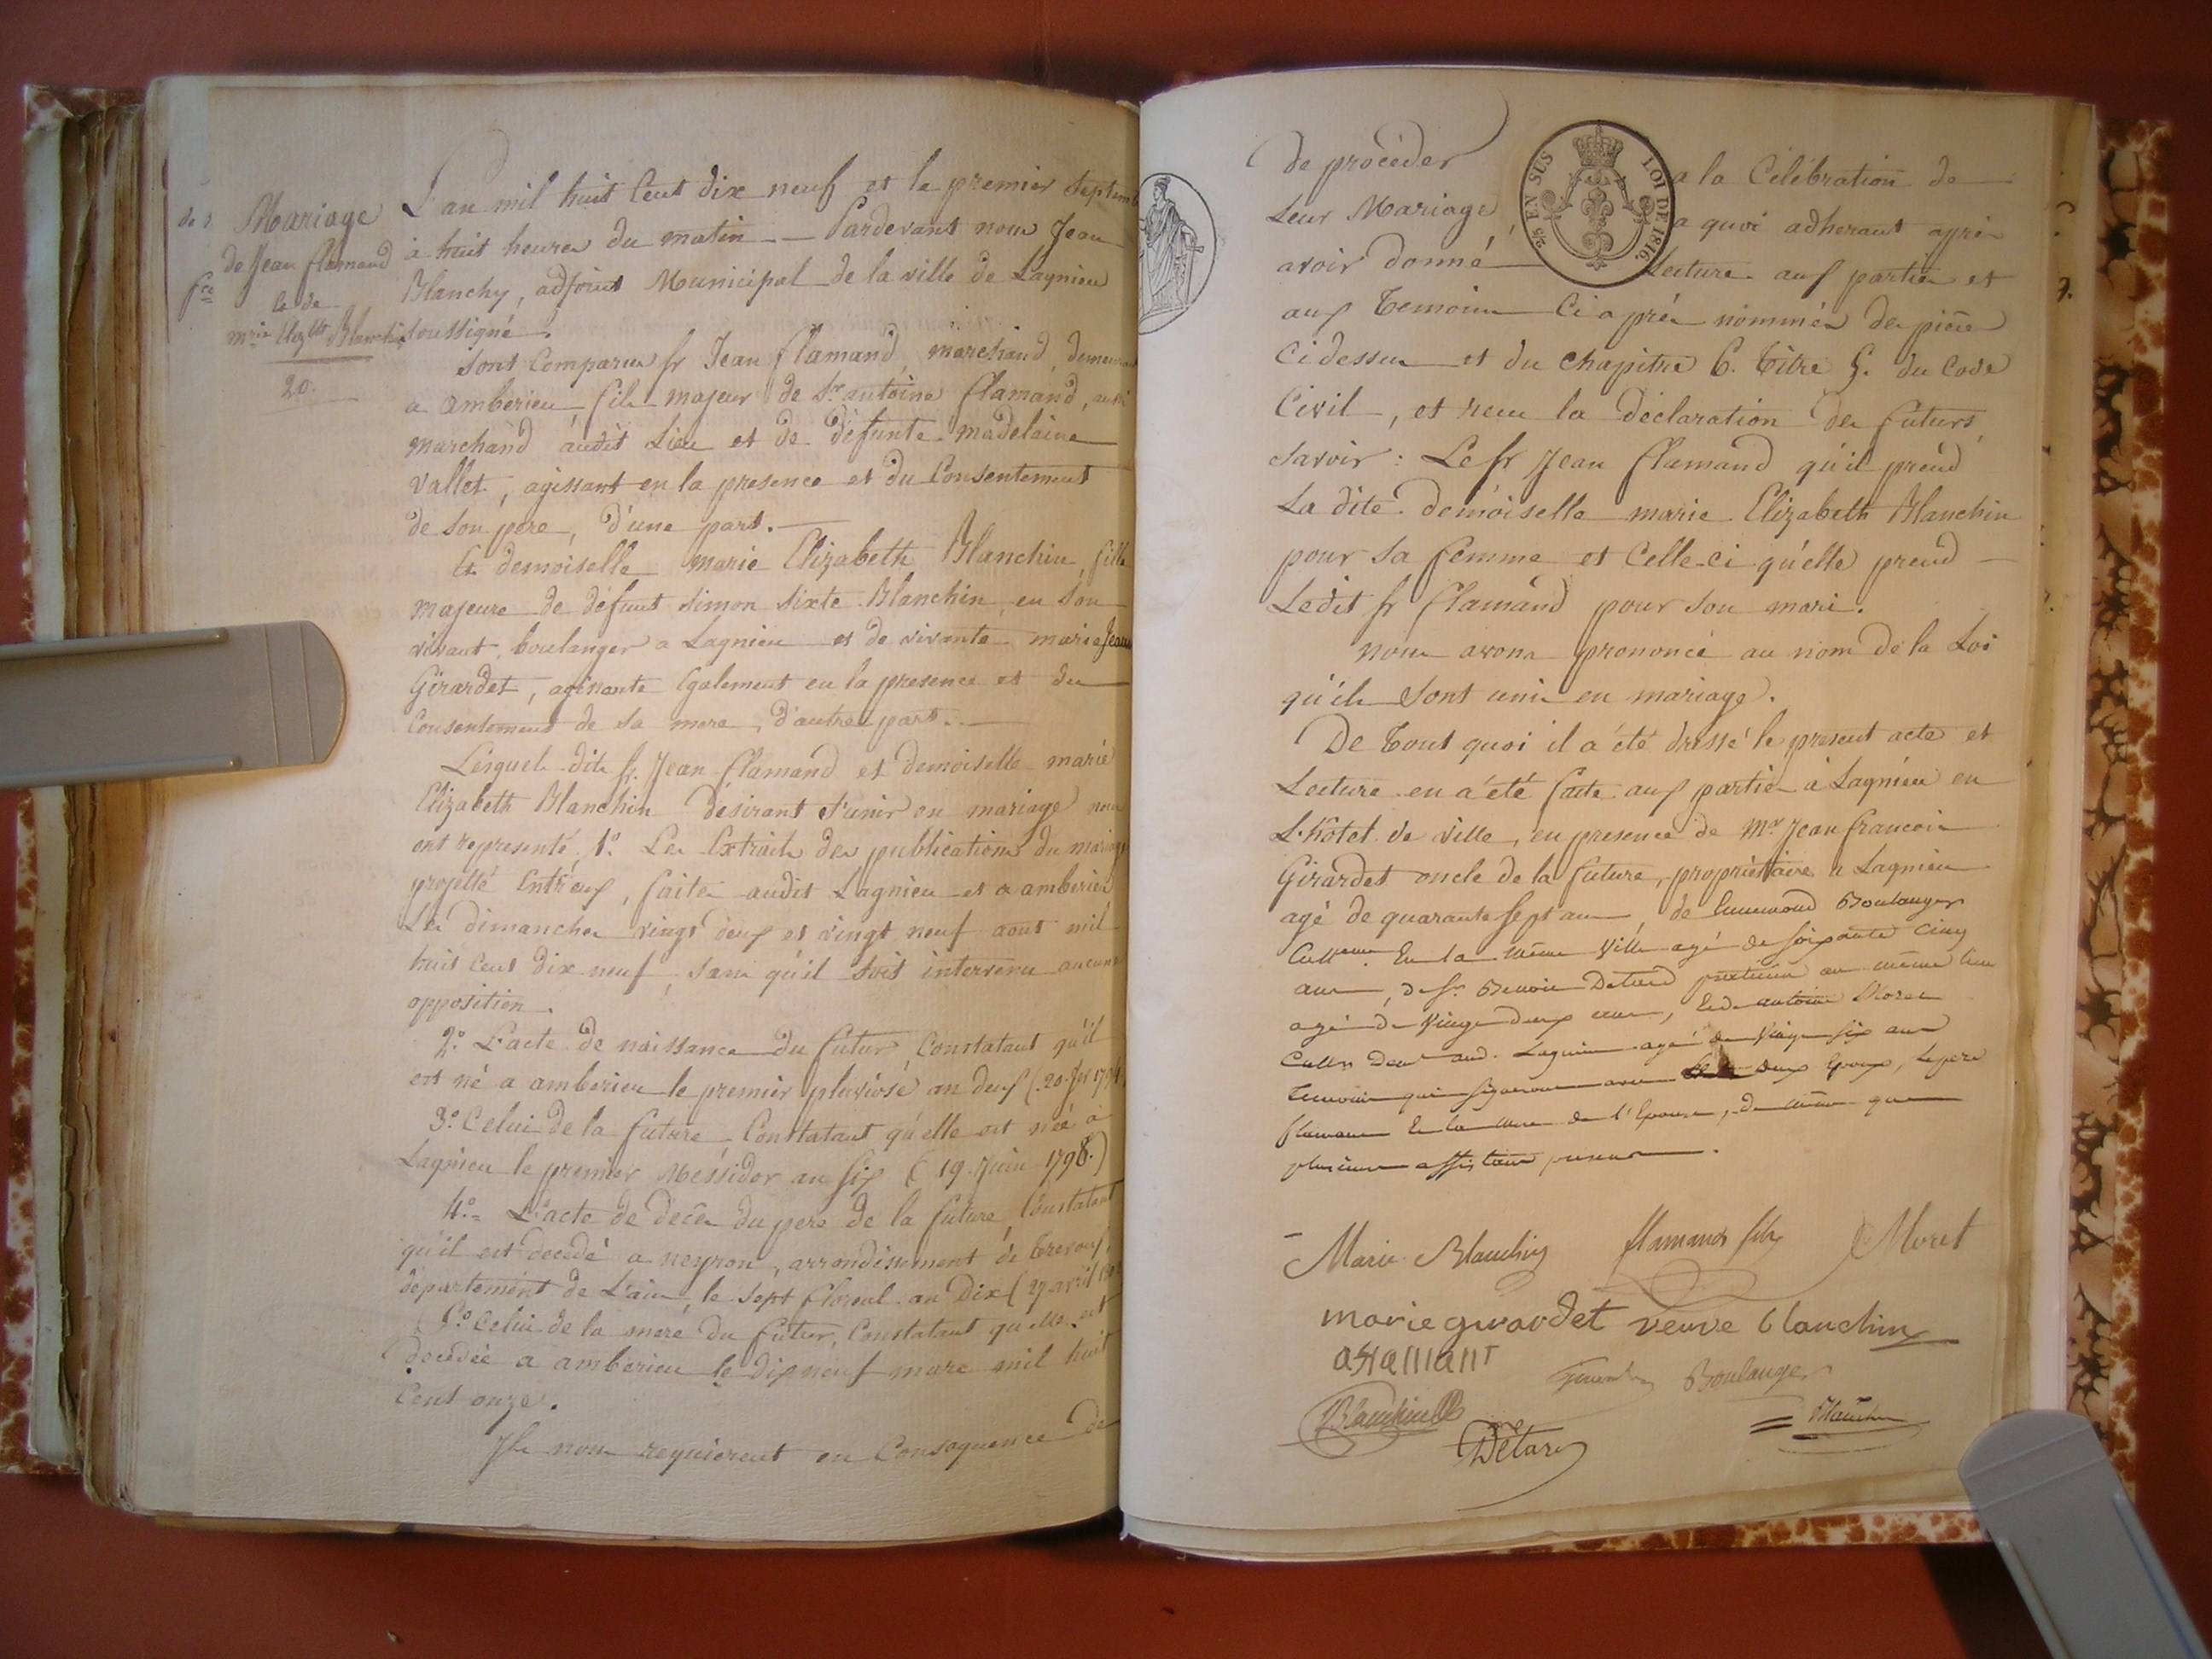 Mariage
de Jean flamand
et de
m.rie Eliz.th Blanchin
20.
L'an mil huit Cent dix neuf et le premier Septemb
à huit heures du matin — Pardevant nous Jean
Blanchy, adjoint Municipal de la ville de Lagnieu
soussigné.
sont Comparus sr Jean flamand, marchand, demeurant
a amberieu, fils majeur de Sr antoine flamand, aussi
marchand audit Lieu et de défunte madelaine
Vallet, agissant en la presence et du Consentement
de son père, d'une part.
Et demoiselle marie Elizabeth Blanchin, fille
majeure de défunt simon sixte Blanchin en son
vivant, boulanger a Lagnieu et de vivante marie Jeanne
Girardet, agissante également en la presence et du
Consentement de sa mere, d'autre part.
Lesquels dits sr. Jean flamand et demoiselle marie
Elizabeth Blanchin désirant s'unir en mariage nous
ont representé, 1.° Les Extraits des publications du mariage
projetté Entr'eux, faites audit Lagnieu et a amberieu
Les dimanches vingt deux et vingt neuf aout mil
huit Cent dix neuf, sans qu'il soit intervenu aucune
opposition.
2.° L'acte de naissance du futur, Constatant qu'il
est né a amberieu le premier pluviose an deux (20. Jer 1794
3.° Celui de la future Constatant qu'elle est née a
Lagnieu le premier Messidor an six (19. Juin 1798.)
4.° L'acte de decès du pere de la future, Constatant
qu'il est decedé a neyron, arrondissement de trevoux,
département de L'ain, le sept floreal an Dix (27 avril 1802
5.° Celui de la mere du futur, Constatant qu'elle est
decedée a amberieu le dix neuf mars mil huit
Cent onze.
Ils nous requierent en Consequence de
de procéder a la Célébration de
Leur Mariage, a quoi adherant après
avoir donné Lecture aux parties et
2/5 EN SUS LOI DE 1816.
aux temoins Ci après nommés des pièces
Ci dessus et du chapitre 6. titre 5. du Code
Civil, et reçu la déclaration des futurs,
Savoir: Le sr Jean flamand qu'il prend
La dite demoiselle marie Elizabeth Blanchin
pour sa femme et Celle-ci qu'elle prend
Ledit sr flamand pour son mari.
nous avons prononcé au nom de la Loi
qu'ils sont unis en mariage.
De tout quoi il a été dressé le present acte et
Lecture en a été faite aux parties à Lagnieu en
L'hotel de ville, en presence de Mr Jean francois
Girardet oncle de la future, propriétaire a Lagnieu
agé de quarante sept ans, de Boulanger
en la même Ville agé de soixante cinq
ans, de Sr Benoit Detard praticien au même lieu
agé de vingt deux ans, et de antoine Moret
agé de vingt six ans
temoins qui signeront avec deux Epoux, le pere
flamand et la mere de l'Epouse, de même que
plusieurs assistans
Marie Blanchin flamand fils Moret
marie girardet veuve blanchin
aflamant
Boulanger
Détard